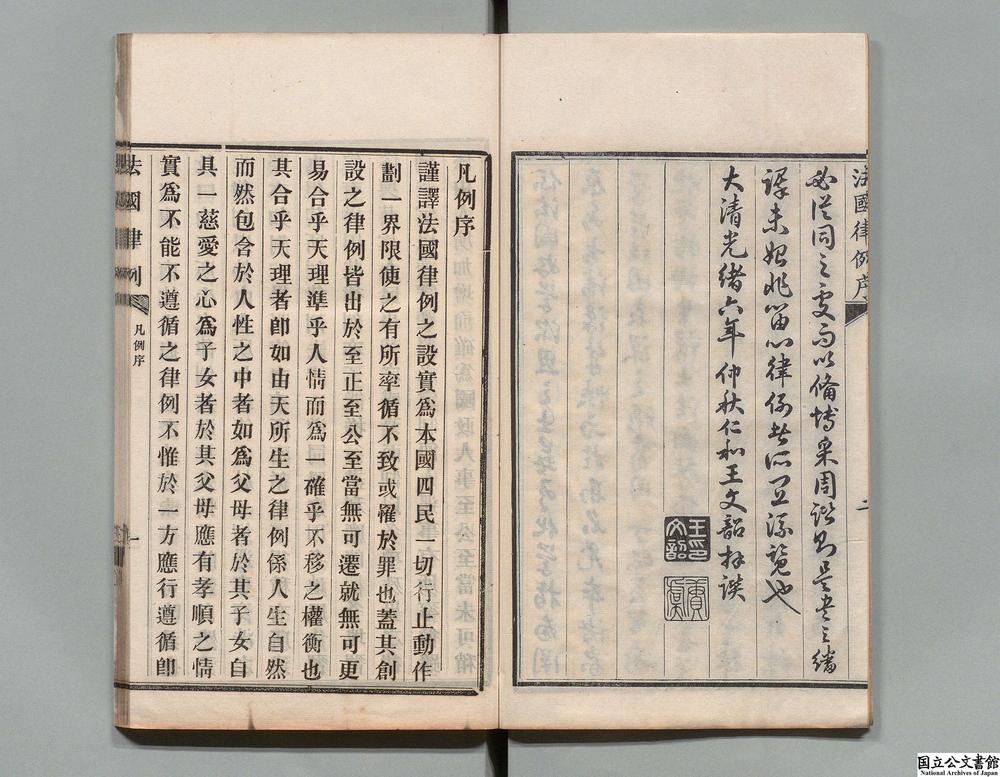 法國律例序
必從同之處而以備博采周諮則是書之繙
譯未始非留心律例者所宜流覽也
大清光緒六年仲秋仁和王文韶拜譔
二
王文韶印
凡例序
謹譯法國律例之設實爲本國四民一切行止動作
劃一界限使之有所率循不致或罹於罪也蓋其創
設之律例皆出於至正至公至當無可遷就無可更
易合乎天理準乎人情而爲一確乎不移之權衡也
其合乎天理者卽如由天所生之律例係人生自然
而然包含於人性之中者如爲父母者於其子女自
具一慈愛之心爲子女者於其父母應有孝順之情
實爲不能不遵循之律例不惟於一方應行遵循卽
法國律例
凡例序
一
国立公文書館
National Archives of Japan